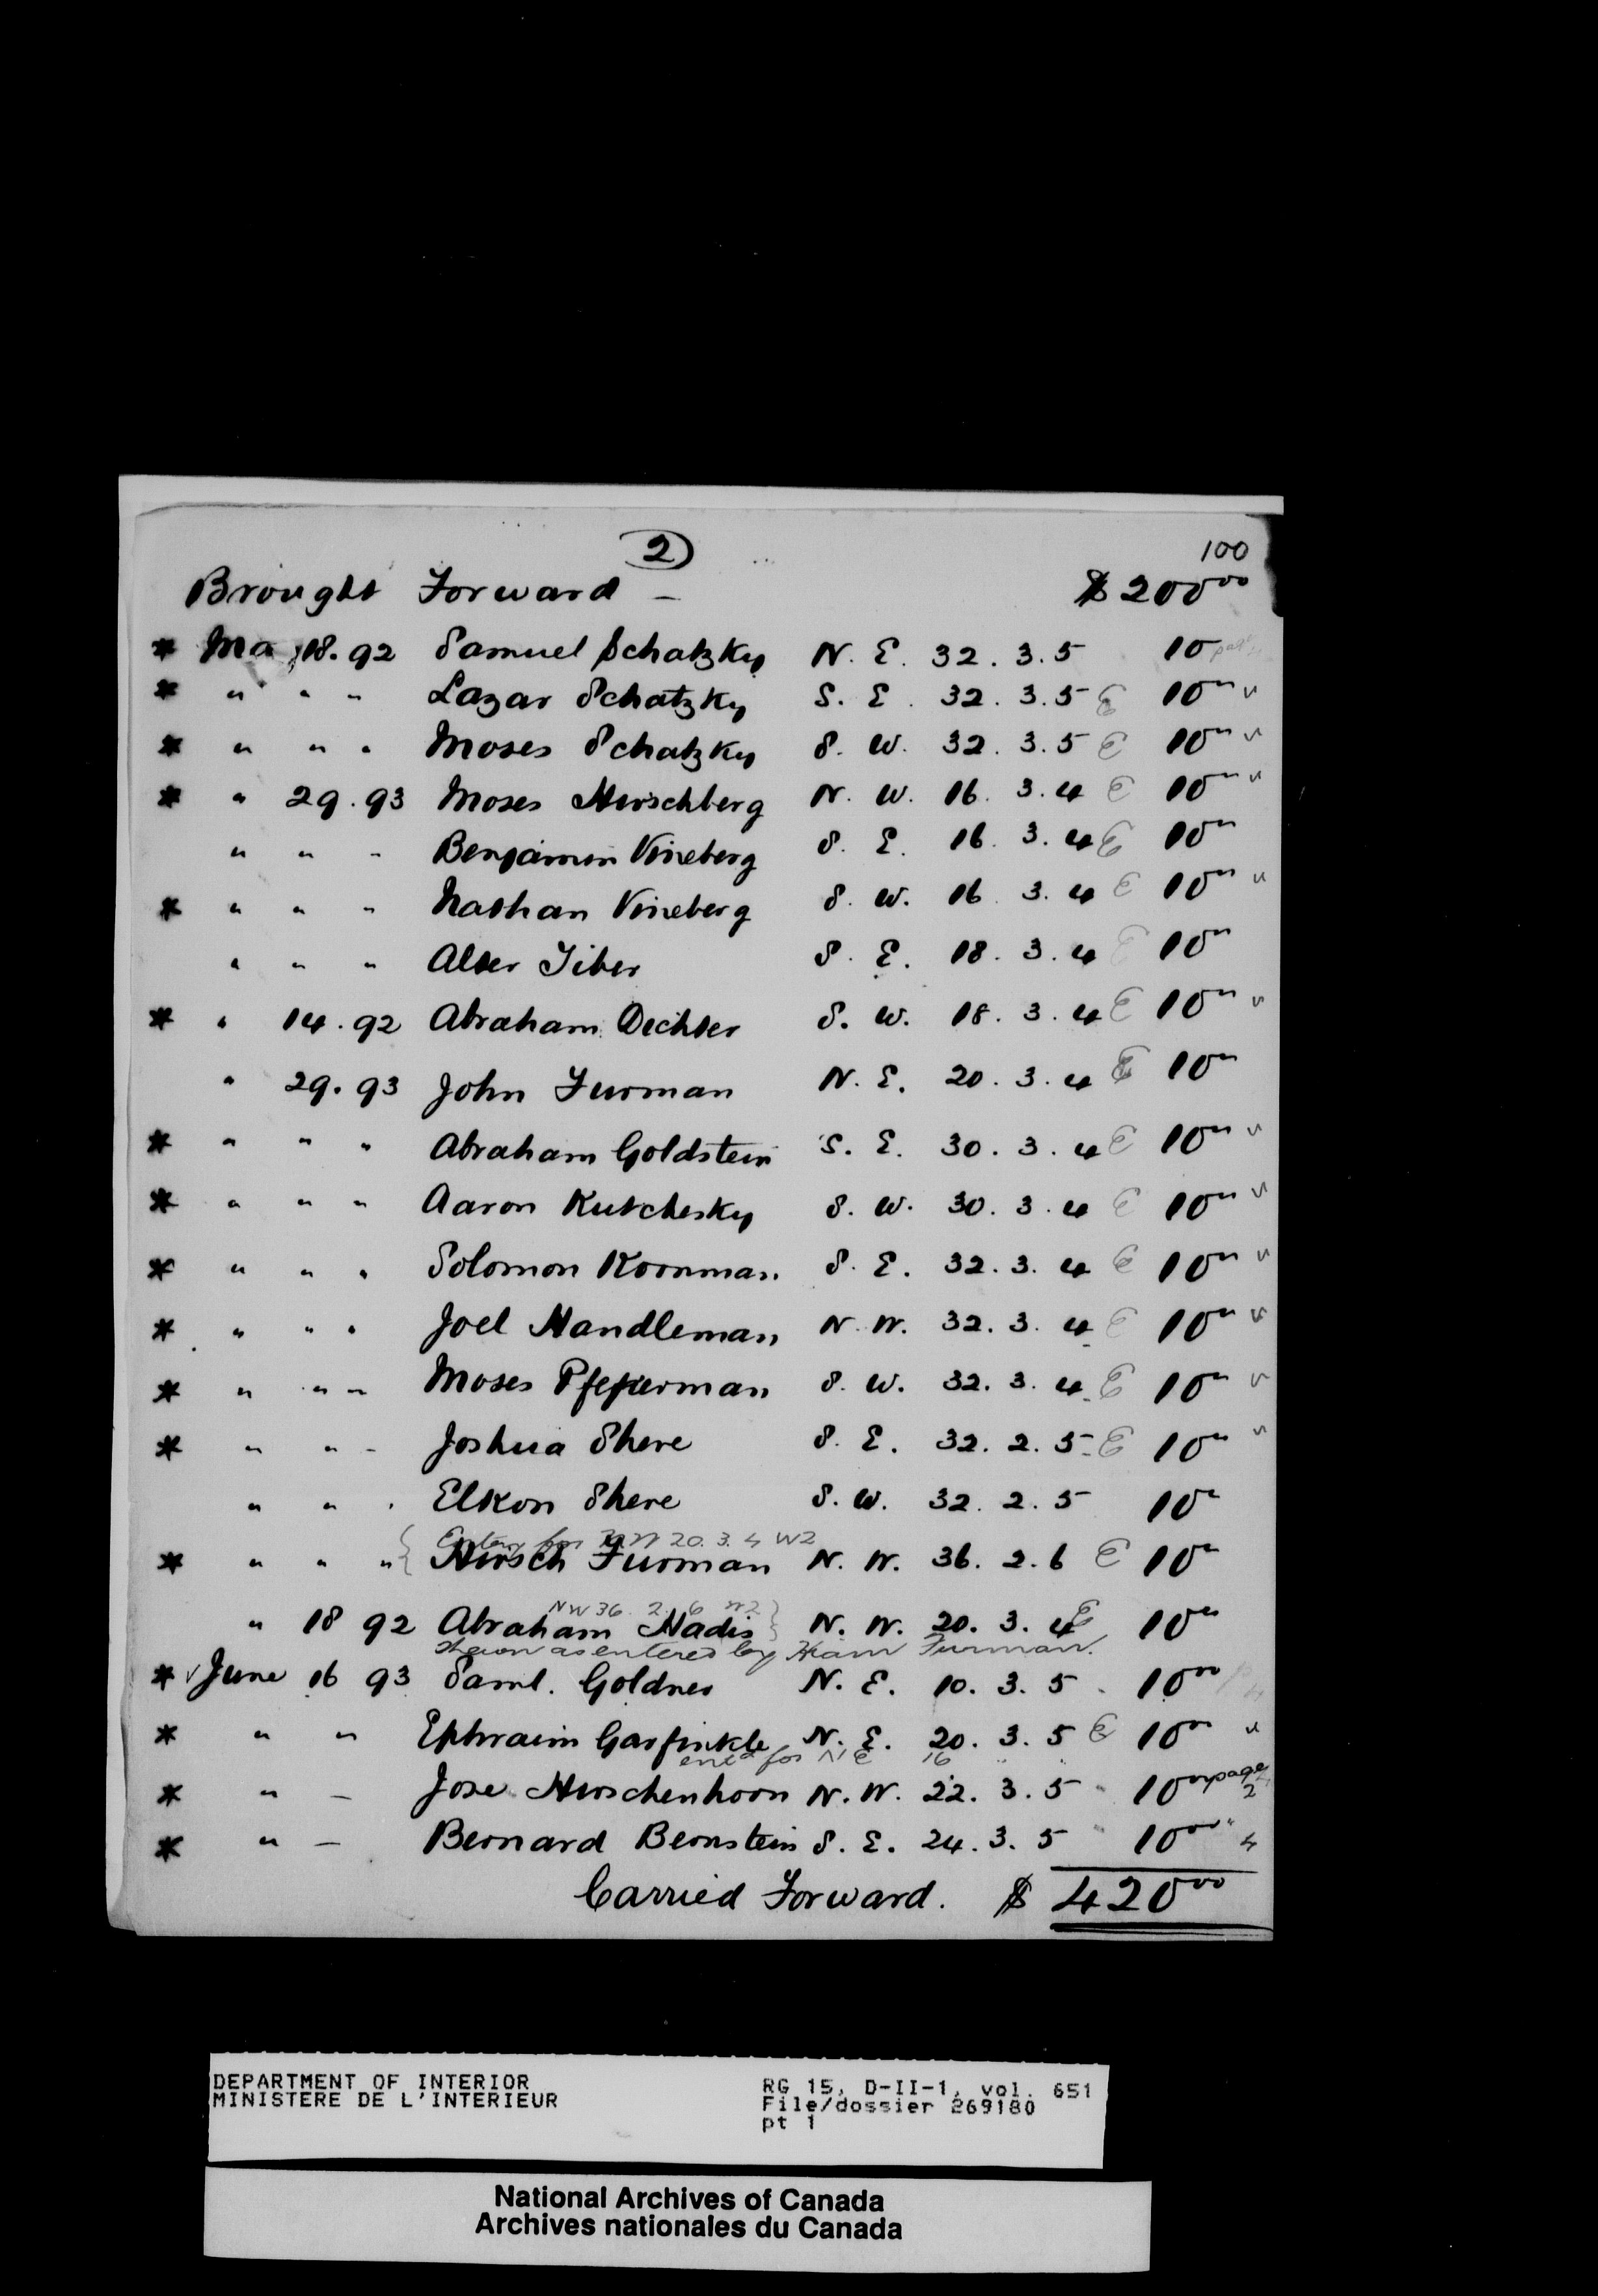 2
100
Brought Forward — $ 200 00
* Ma 18. 92 Samuel Schatzky N. E. 32. 3. 5 10
* " " " Lazar Schatzky S. E. 32. 3. 5 E 10 00 "
* " " " Moses Schatzky S. W. 32. 3. 5 E 10 00 "
* " 29. 93 Moses Hirschberg N. W. 16. 3. 4 E 10 00 "
" " " Benjamin Vineberg S. E. 16. 3. 4 E 10 00
* " " " Nathan Vineberg S. W. 16. 3. 4 E 10 00 "
" " " Alter Tiber S. E. 18. 3. 4 E 10 00
* " 14. 92 Abraham Dechter S. W. 18. 3. 4 E 10 00 "
" 29. 93 John Furman N. E. 20. 3. 4 E 10 00
* " " " Abraham Goldstein S. E. 30. 3. 4 E 10 00 "
* " " " Aaron Kutchesky S. W. 30. 3. 4 E 10 00 "
* " " " Solomon Koonman S. E. 32. 3. 4 E 10 00 "
* " " " Joel Handleman N. W. 32. 3. 4 E 10 00 "
* " " " Moses Pfeferman S. W. 32. 3. 4 E 10 00 "
* " " " Joshua Shere S. E. 32. 2. 5 E 10 00 "
" " " Elkon Shere S. W. 32. 2. 5 10 00
Entry for NW 20. 3. 4 W2
* " " " Hirsch Furman N. W. 36. 2. 6 E 10 00
NW 36 2 6 W2
" 18 92 Abraham Hadis N. W. 20. 3. 4 E 10 00
shewn as entered by Furman.
* June 16 93 Saml. Goldner N. E. 10. 3. 5 10 00
* " " Ephraim Garfinkle N. E. 20. 3. 5 E 10 00 "
entd for NE 16 " "
* " — Jose Hirschenhorn N. W. 22. 3. 5 " 10 00 page 2
* " — Bernard Bernstein S. E. 24. 3. 5 " 10 00 " 4
Carried Forward. $ 420 00
DEPARTMENT OF INTERIOR
MINISTERE DE L'INTERIEUR
RG 15, D-II-1, vol. 651
File/dossier 269180
pt 1
National Archives of Canada
Archives nationales du Canada